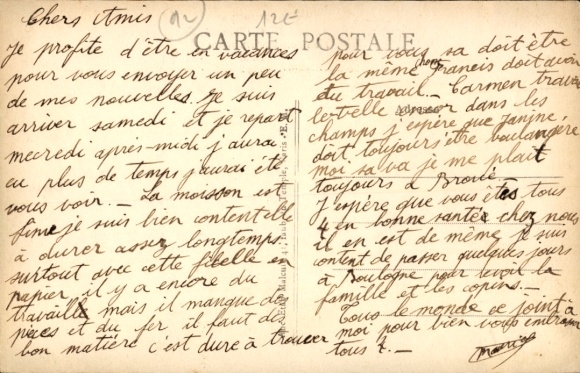 Chers Amis
12
12E
CARTE POSTALE
Je profite d'être en vacances
pour vous envoyer un peu
de mes nouvelles. Je suis
arriver samedi et je repart
mecredi après-midi j'aurai
eu plus de temps j'aurai été
vous voir. — La moisson est
fini je suis bien content elle
à durer assez longtemps
surtout avec cette ficelle en
papier il y a encore du
travaille mais il manque des
pièces et du fer il faut de
bon matière c'est dure à trouver
pour vous sa doit être
la même chose Francis doit avoir
du travail — Carmen travaille
le-t-elle dans les
champs j'espère que Janine,
doit toujours être boulangère
moi sa va je me plait
toujours à
J'espère que vous êtes tous
4 en bonne santée chez nous
il en est de même je suis
content de passer quelques jours
à Boulogne pour revoir la
famille et les copins —
Tous le monde ce joint à
moi pour bien vous embrasser
tous 4. —